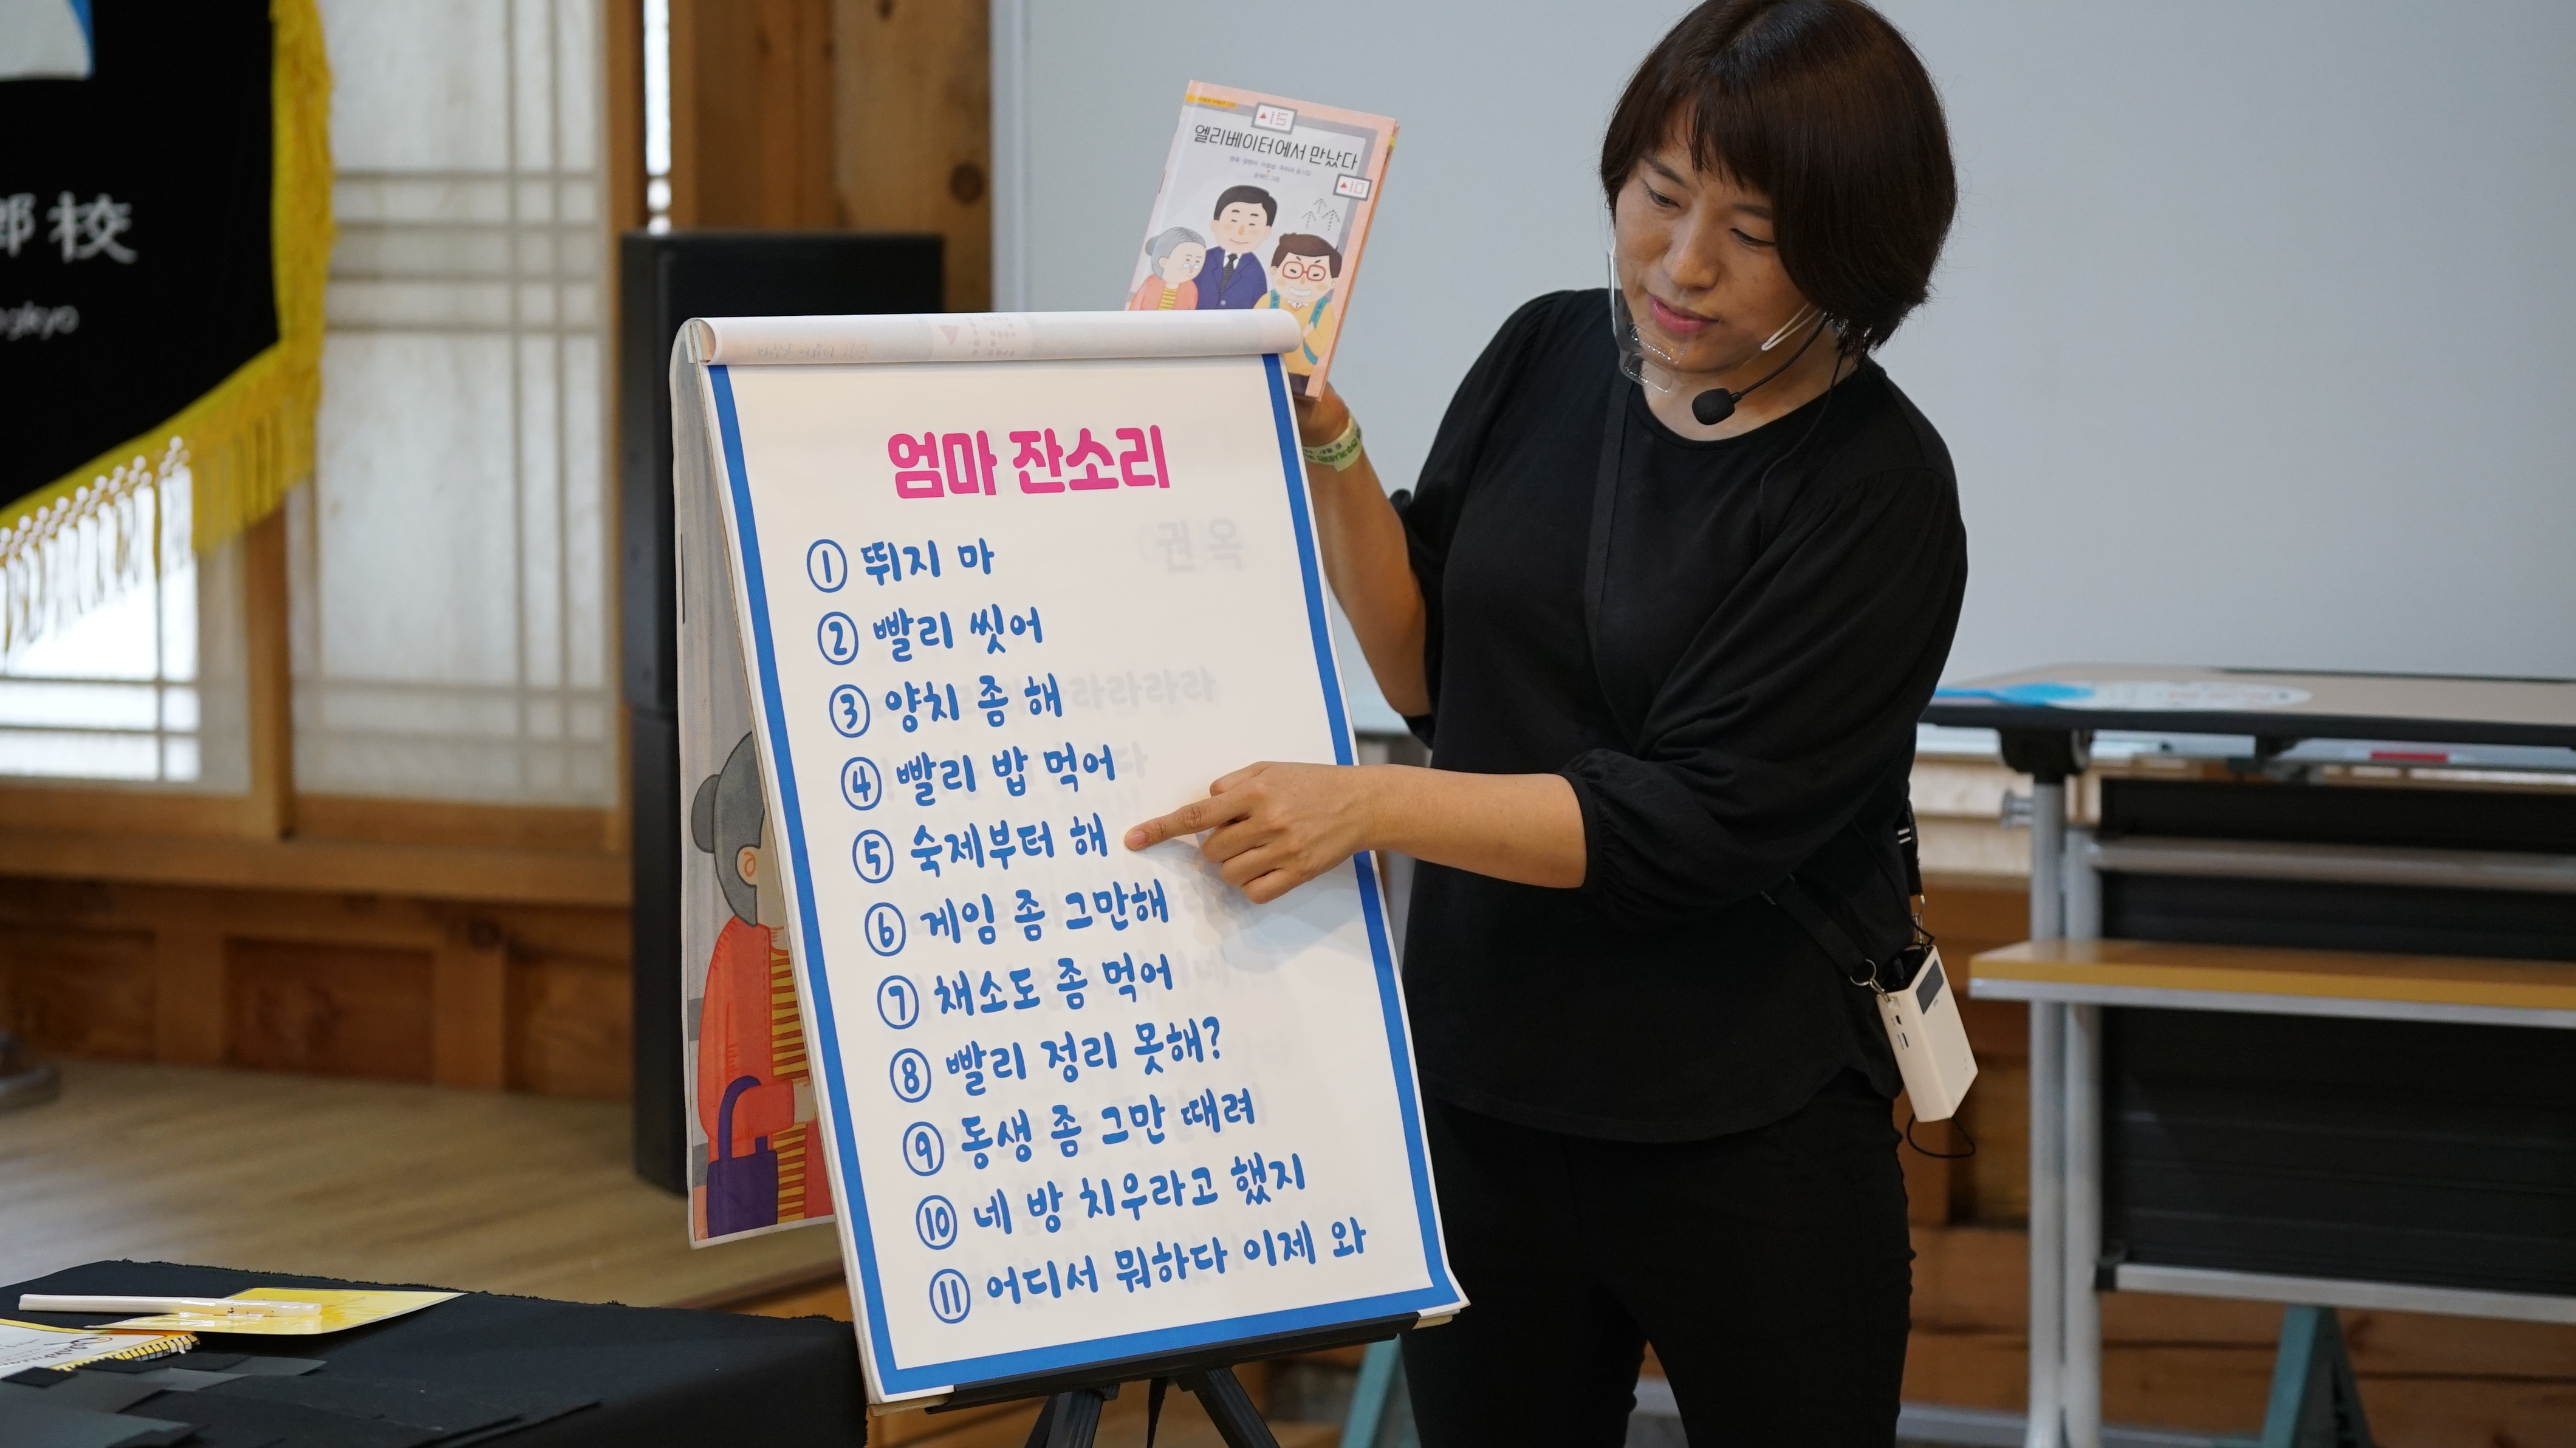 校
엘리베이터에서 만났다
엄마 잔소리
① 뛰지 마
② 빨리 씻어
③ 양치 좀 해
④ 빨리 밥 먹어
⑤ 숙제부터 해
⑥ 게임 좀 그만해
⑦ 채소도 좀 먹어
⑧ 빨리 정리 못해?
⑨ 동생 좀 그만 때려
⑩ 네 방 치우라고 했지
⑪ 어디서 뭐하다 이제 와